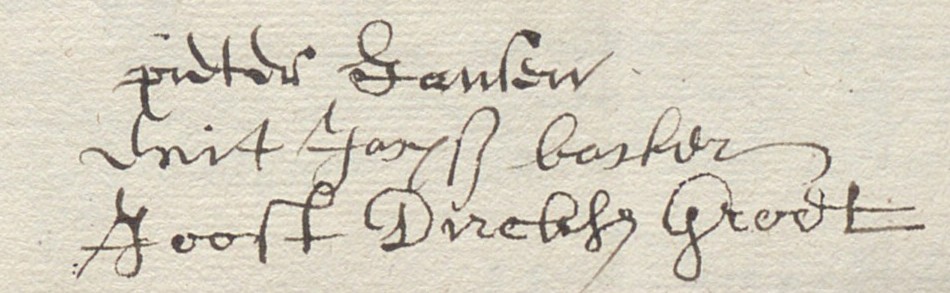 pieter Jansen
wit Jansz backer
Joost Dircksz Groot